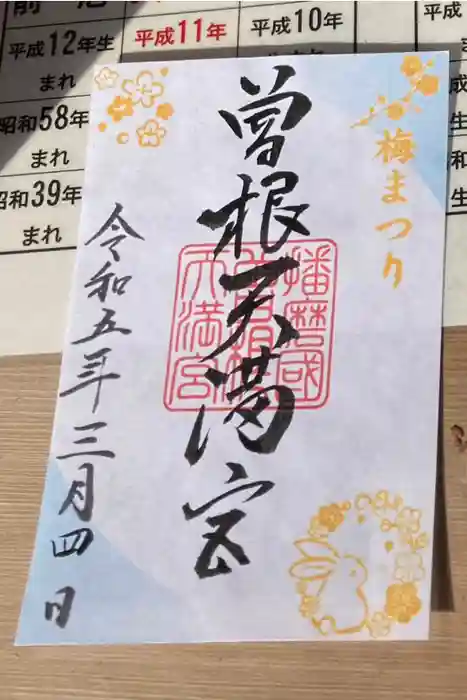 平成12年生
まれ
平成11年
平成10年
平成
昭和58年
まれ
昭和39年
まれ
梅まつり
曽根天満宮
播磨國
天満宮
令和五年三月四日